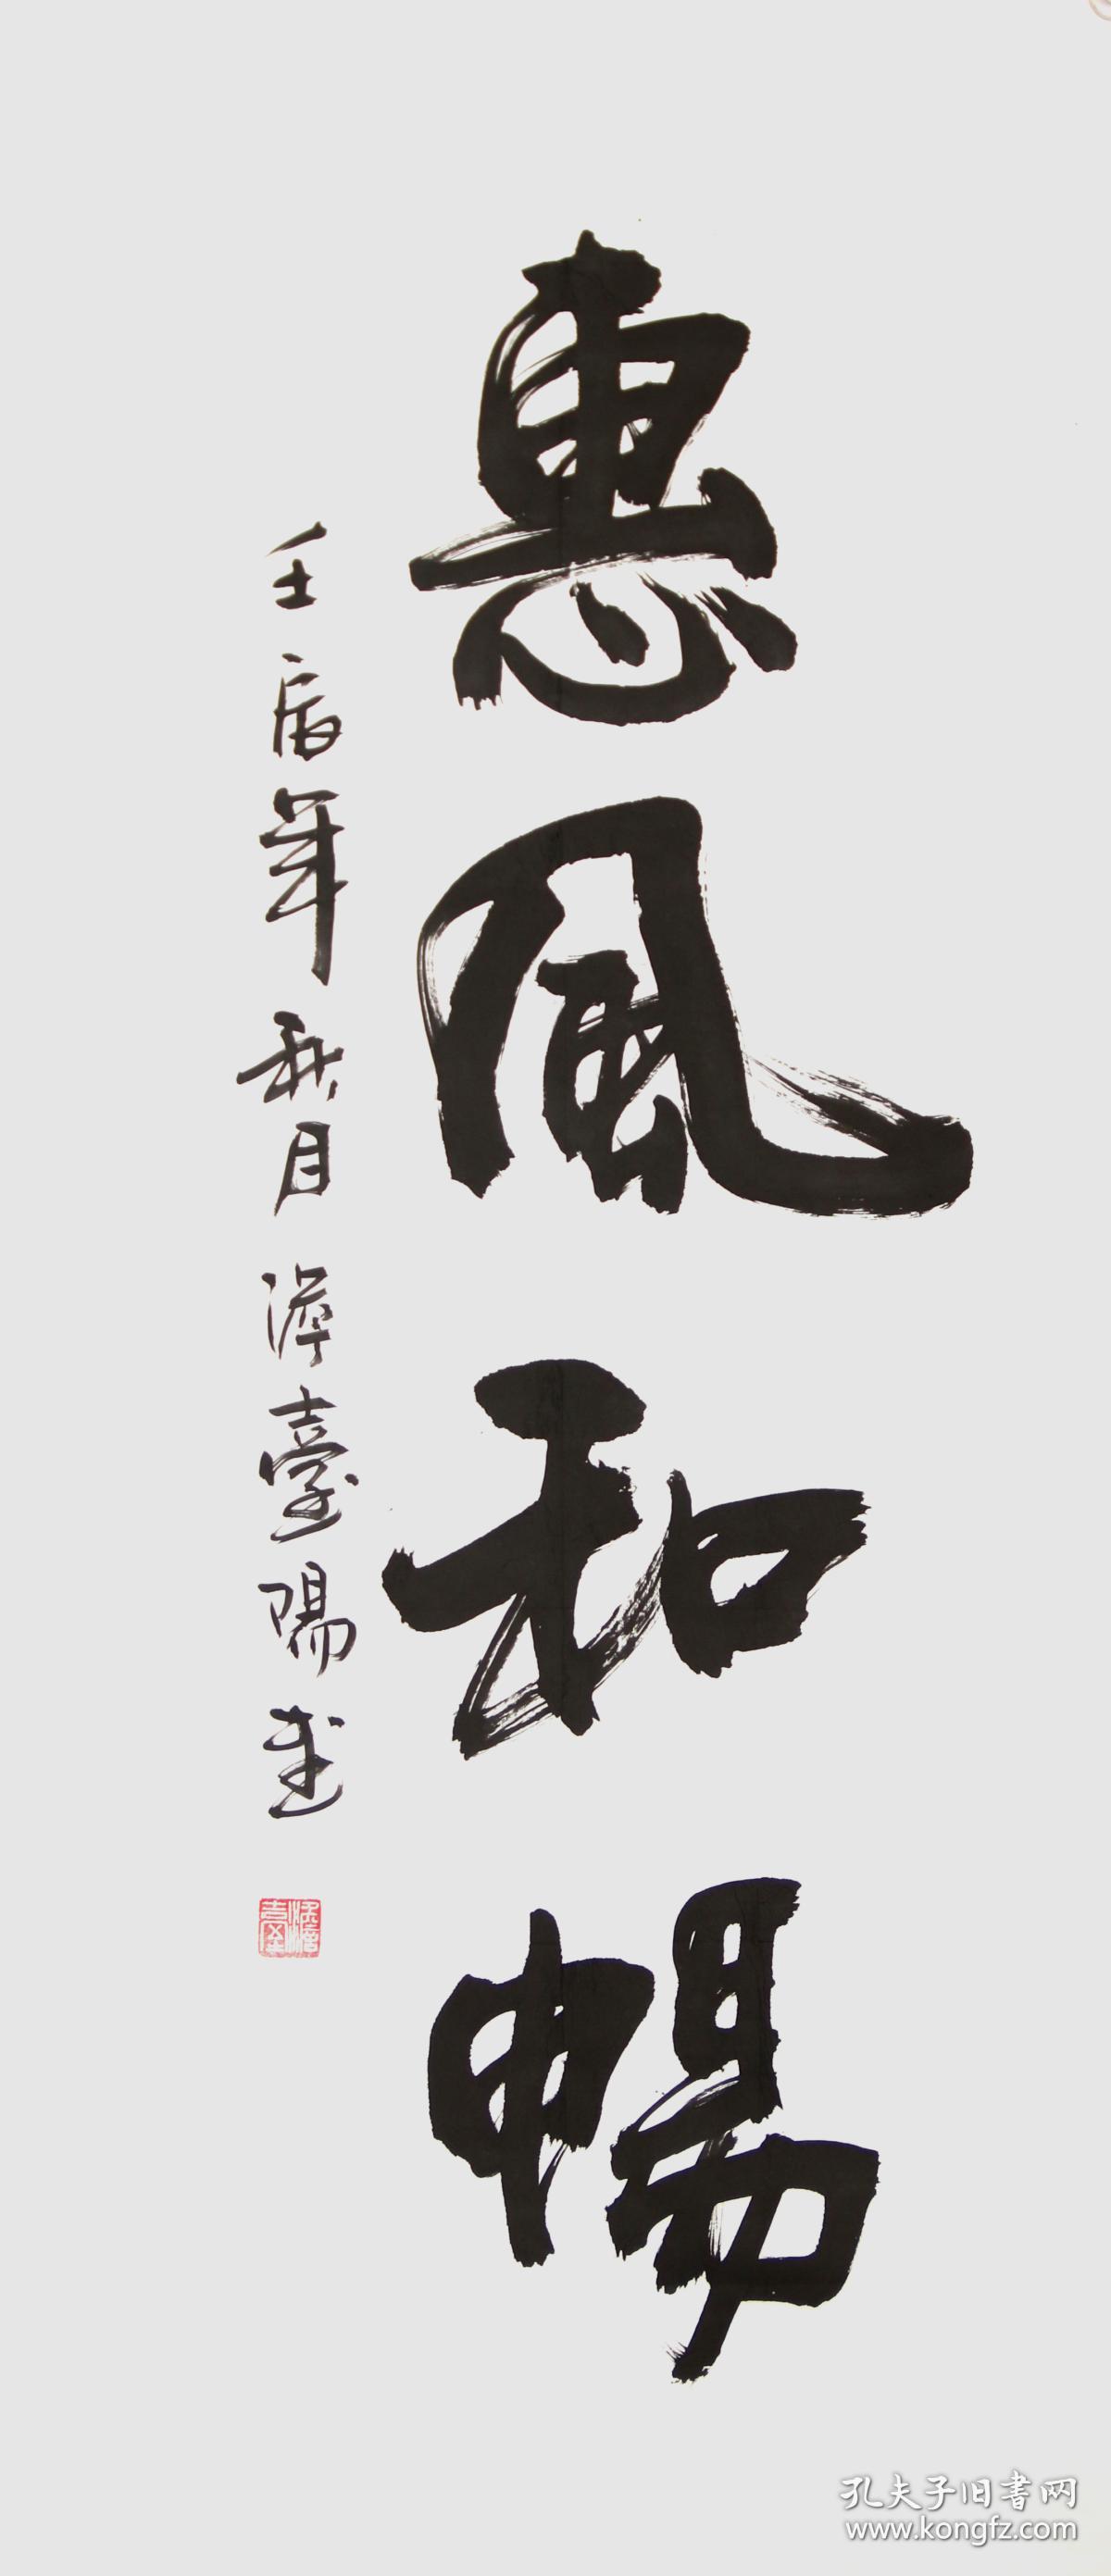 惠風和暢
壬辰年秋月澹臺陽
澹臺
孔夫子旧书网
www.kongfz.com